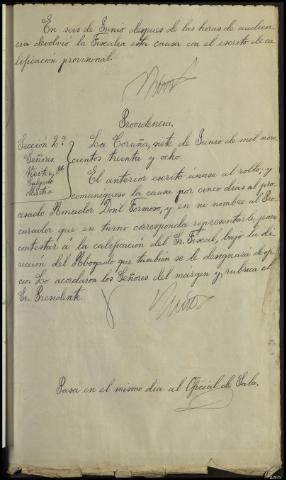 En seis de Junio despues de las horas de audien-
cia devolvió la Fiscalia esta causa con el escrito de ca-
lificacion provisional.
Providencia.
Sección 2ª
Señores
La Coruña, siete de Junio de mil nove-
cientos treinta y ocho.
El anterior escrito unase al rollo; y
comuniquese la causa por cinco dias al pro-
cesado Amador Formoso, y en su nombre al Pro-
curador que en turno corresponda representarle, para
contestar á la calificacion del Sr. Fiscal, bajo la di-
rección del Abogado que tambien se le designará de ofi-
cio. Lo acordaron los Señores del margen y rubrica el
Sr. Presidente.
Pasa en el mismo dia al Oficial de Sala.